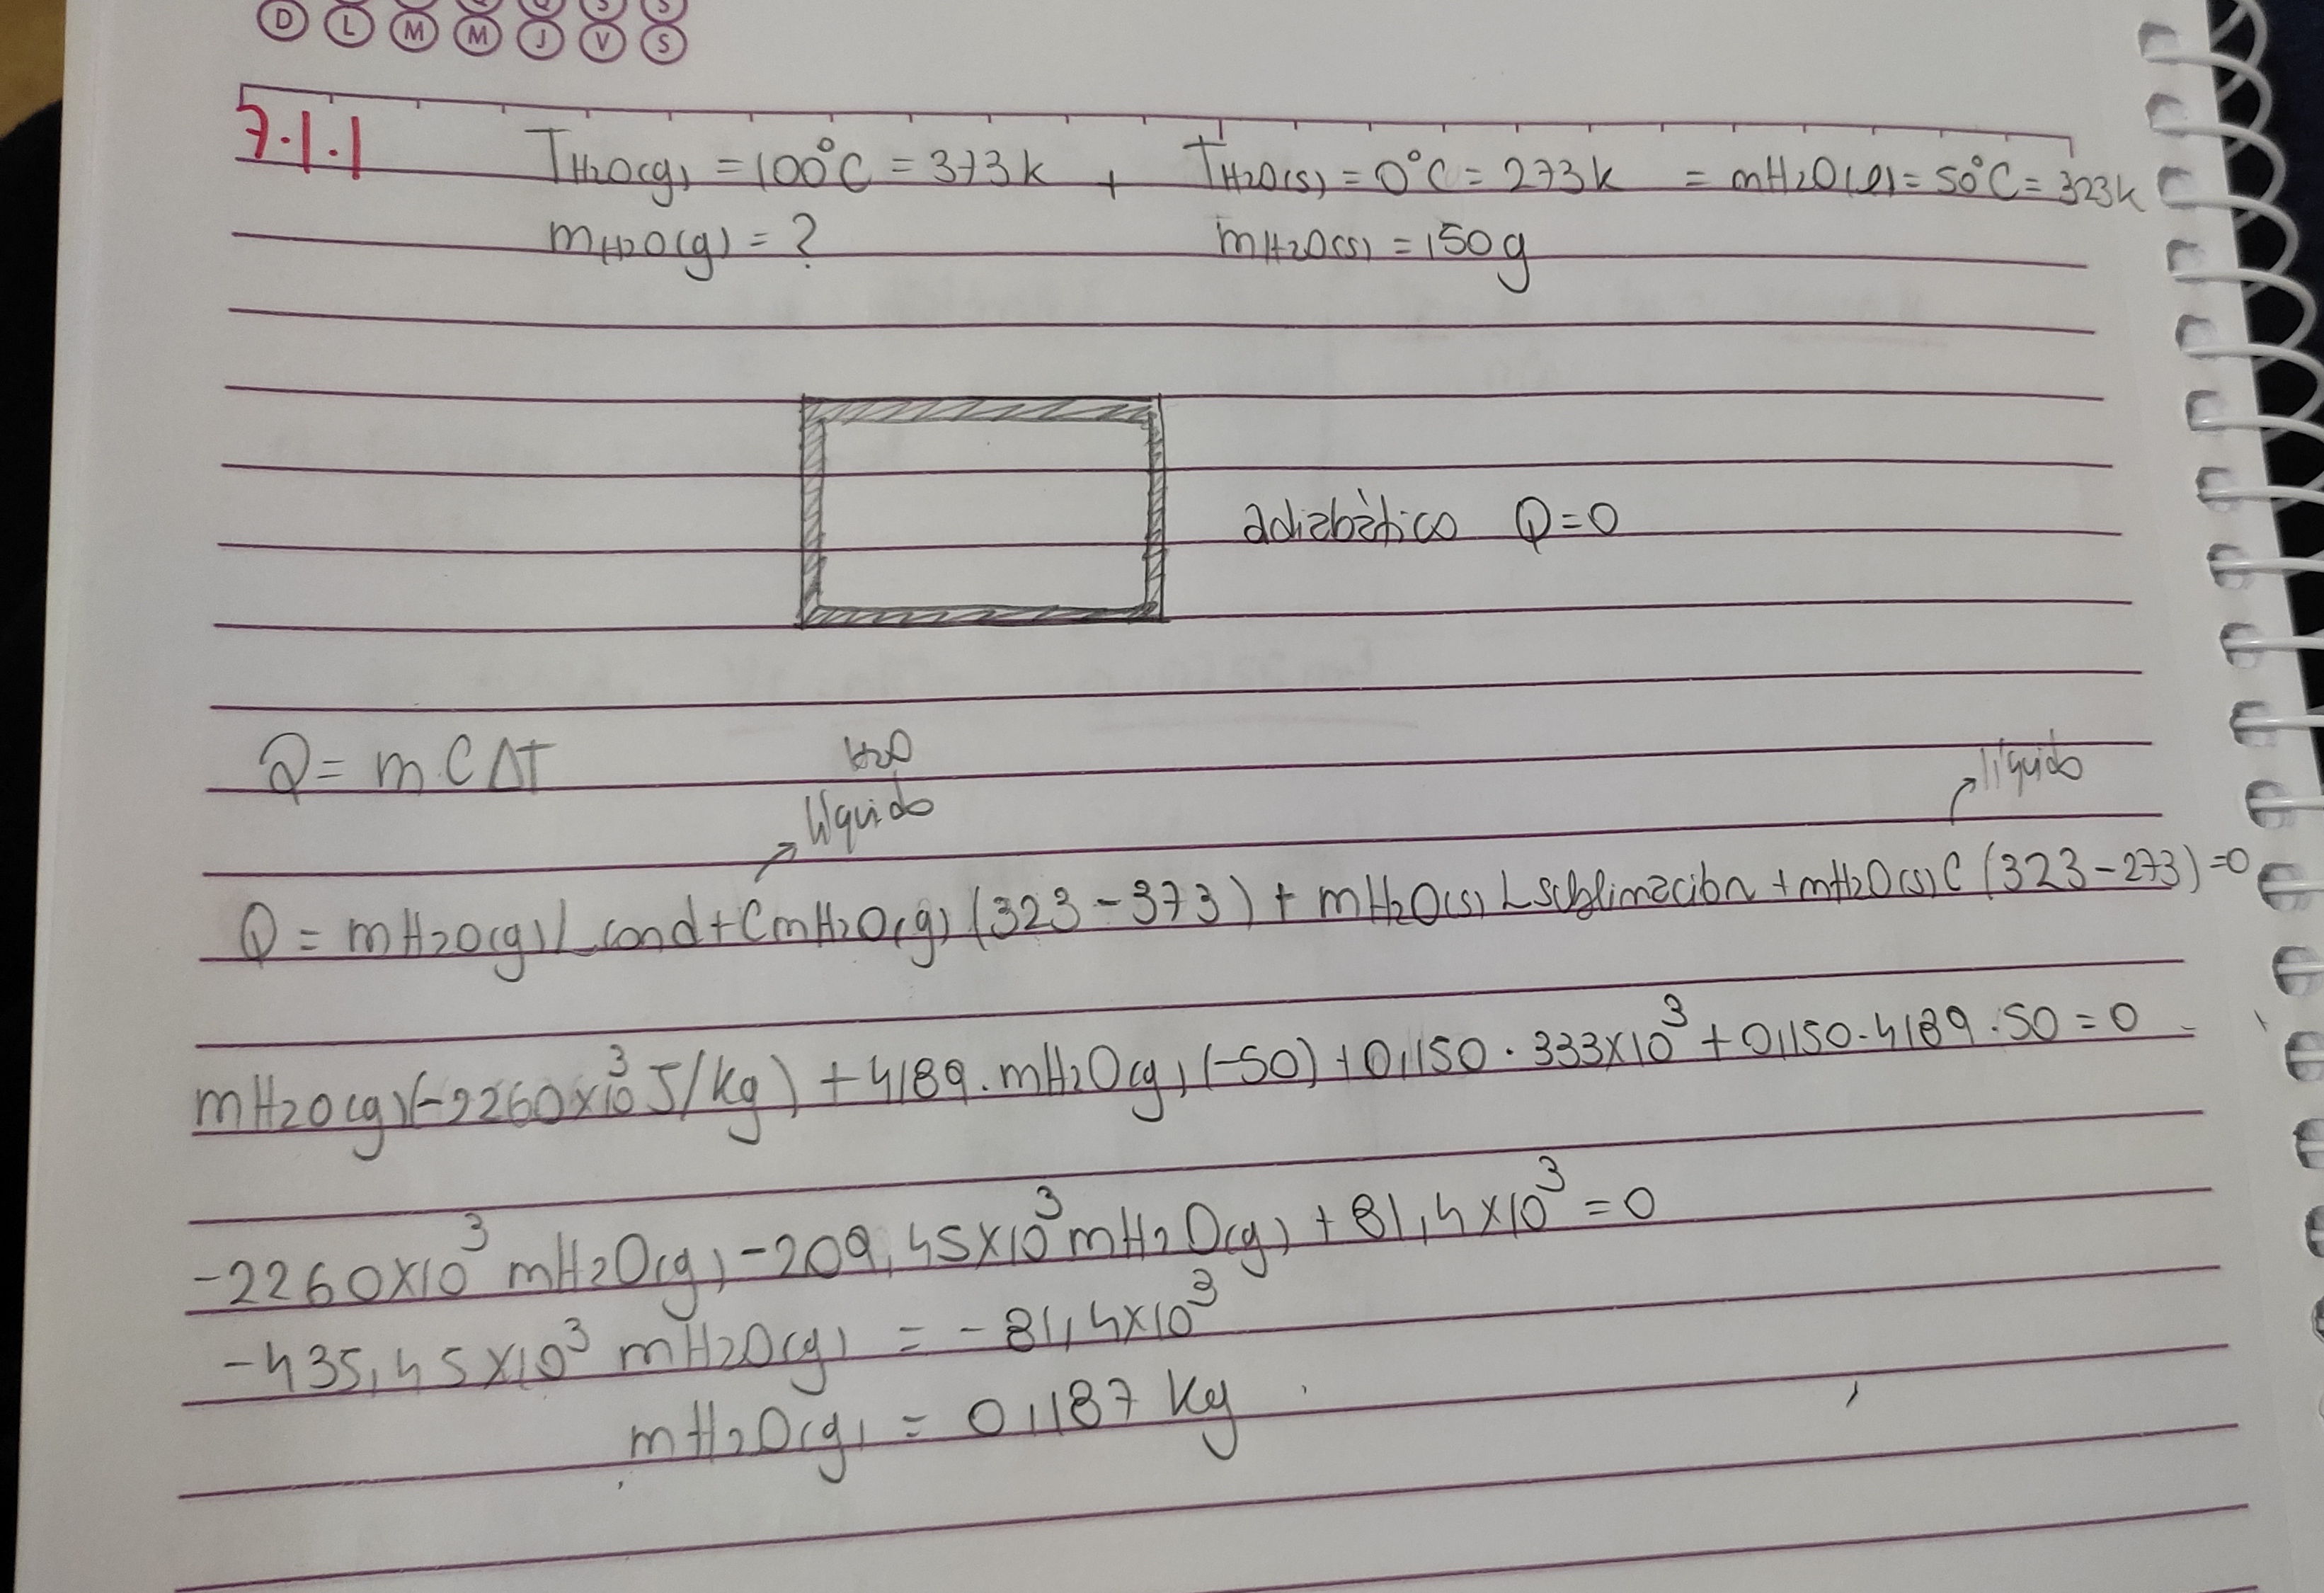 D L M M J V S
7.1.1 TH2O(g) = 100°C = 373k + TH2O(s) = 0°C = 273k = mH2O(l) = 50°C = 323k
mH2O(g) = ? mH2O(s) = 150g
adiabàtico Q=0
Q = m.CΔT H2O
líquido líquido
Q = mH2O(g)Lcond + CmH2O(g) (323-373) + mH2O(s) Lsublimación + mH2O(s)C (323-273) =0
mH2O(g)(-2260x10³ J/kg) + 4189.mH2O(g) (-50) + 0,150 . 333x10³ + 0,150.4189.50 = 0
-2260x10³ mH2O(g) -209,45x10³ mH2O(g) + 81,4x10³ = 0
-435,45x10³ mH2O(g) = -81,4x10³
mH2O(g) = 0,187 kg